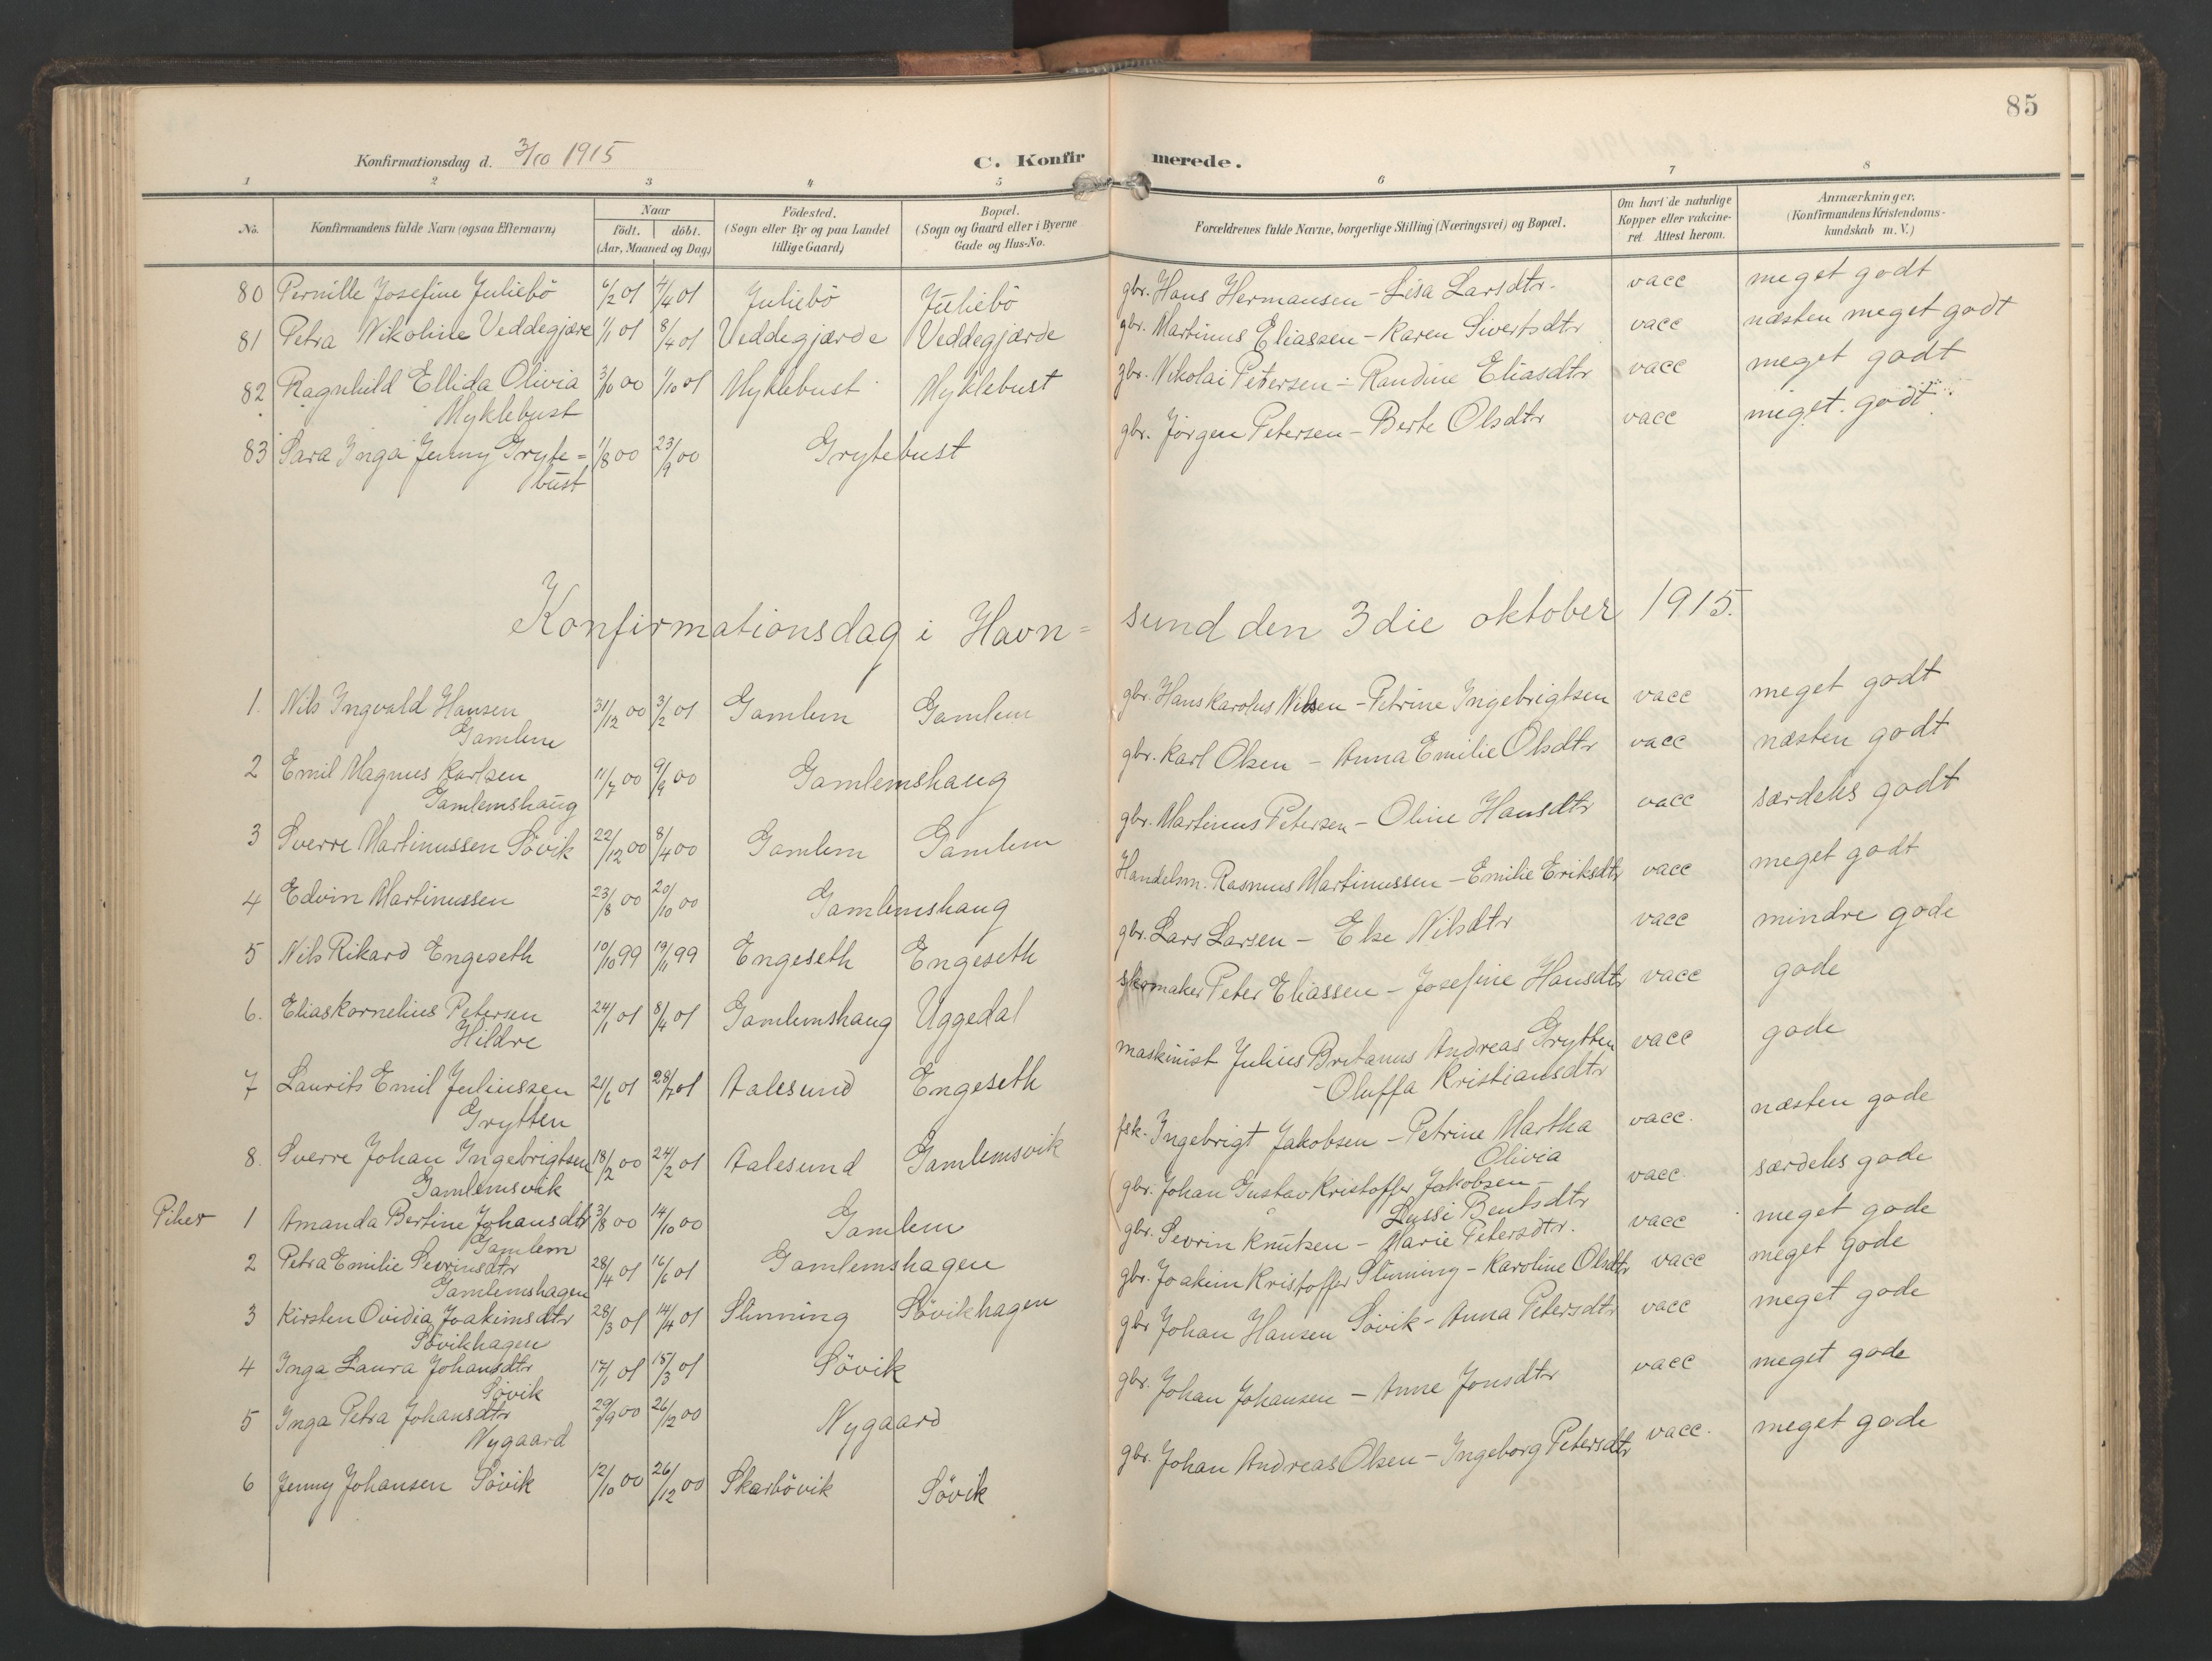 85
Konfirmationsdag d. 3/10 1915
C. Konfirmerede.
1 2 3 4 5 6 7 8
No. Konfirmandens fulde Navn (ogsaa Efternavn) Naar Födt. döbt. (Aar, Maaned og Dag) Födested. (Sogn eller By og paa Landet tillige Gaard) Bopæl. (Sogn og Gaard eller i Byerne Gade og Hus-No. Forældrenes fulde Navne, borgerlige Stilling (Næringsvei) og Bopæl. Om havt de naturlige Kopper eller vakcineret Attest herom. Anmærkninger. (Konfirmandens Kristendomskundskab m. V.)
80 Pernille Josefine Juliebö 6/2 01 4/4 01 Juliebö Juliebö gbr. Hans Hermansen - Lisa Larsdtr. vacc meget godt
81 Petra Nikoline Veddegjære 1/1 01 8/4 01 Veddegjærde Veddegjærde gbr. Martinus Eliassen - Karen Sivertsdtr vacc næsten meget godt
82 Ragnhild Ellida Olivia 3/10 00 1/10 01 Myklebust Myklebust gbr. Nikolai Petersen - Randine Eliasdtr vacc meget godt
Myklebust
83 Sara Inga Jenny Gryte= 1/8 00 23/9 00 Grytebust gbr. Jörgen Petersen - Berte Olsdtr vacc meget godt
bust
Konfirmationsdag i Havn=sund den 3die oktober 1915.
1. Nils Ingvald Hansen 31/12 00 3/2 01 Gamlem Gamlem gbr. Hans Karolus Nilsen - Petrine Ingebrigtsen vacc meget godt
Gamlem
2 Emil Magnus Karlsen 11/7 00 9/9 00 Gamlemshaug gbr. Karl Olsen - Anna Emilie Olsdtr vacc næsten godt
Gamlemshaug
3 Sverre Martinussen Sövik 22/12 00 8/4 00 Gamlem Gamlem gbr. Martinus Petersen - Oline Hansdtr vacc særdeles godt
4 Edvin Martinussen 23/8 00 20/10 00 Gamlemshaug Handelsm. Rasmus Martinussen - Emilie Eriksdtr vacc meget godt
5 Nils Rikard Engeseth 10/10 99 19/11 99 Engeseth Engeseth gbr. Lars Larsen - Else Nilsdtr vacc mindre gode
6. Elias Kornelius Petersen 24/1 01 8/4 01 Gamlemshaug Uggedal skomaker Peter Eliassen - Josefine Hansdtr vacc gode
Hildre
7 Laurits Emil Juliussen 21/6 01 28/7 01 Aalesund Engeseth maskinist Julius Britanus Andreas Grytten vacc gode
Grytten - Oluffa Kristiansdtr
8. Sverre Johan Ingebrigtsen 18/2 00 24/2 01 Aalesund Gamlemsvik fsk. Ingebrigt Jakobsen - Petrine Martha vacc. næsten gode
Gamlemsvik Olivia
Piker 1 Amanda Bertine Johansdtr 3/8 00 14/10 00 Gamlem gbr. Johan Gustav Kristoffer Jakobsen - vacc. særdeles gode
Gamlem Lussi Bentsdtr
2 Petra Emilie Sevrinsdtr 28/4 01 16/6 01 Gamlemshagen gbr. Sevrin Knutsen - Marie Petersdtr. vacc meget gode
Gamlemshagen
3 Kirsten Ovidia Joakimsdtr 28/3 01 14/4 01 Slinning Sövikhagen gbr. Joakim Kristoffer Slinning - Karoline Olsdtr vacc meget gode
Sövikhagen
4 Inga Laura Johansdtr 17/1 01 15/3 01 Sövik gbr Johan Hansen Sövik - Anna Petersdtr vacc meget gode
Sövik
5 Inga Petra Johansdtr 29/9 00 26/12 00 Nygaard gbr. Johan Johansen - Anne Jonsdtr vacc meget gode
Nygaard
6 Jenny Johansen Sövik 12/10 00 26/12 00 Skarbövik Sövik gbr. Johan Andreas Olsen - Ingeborg Petersdtr vacc. meget gode